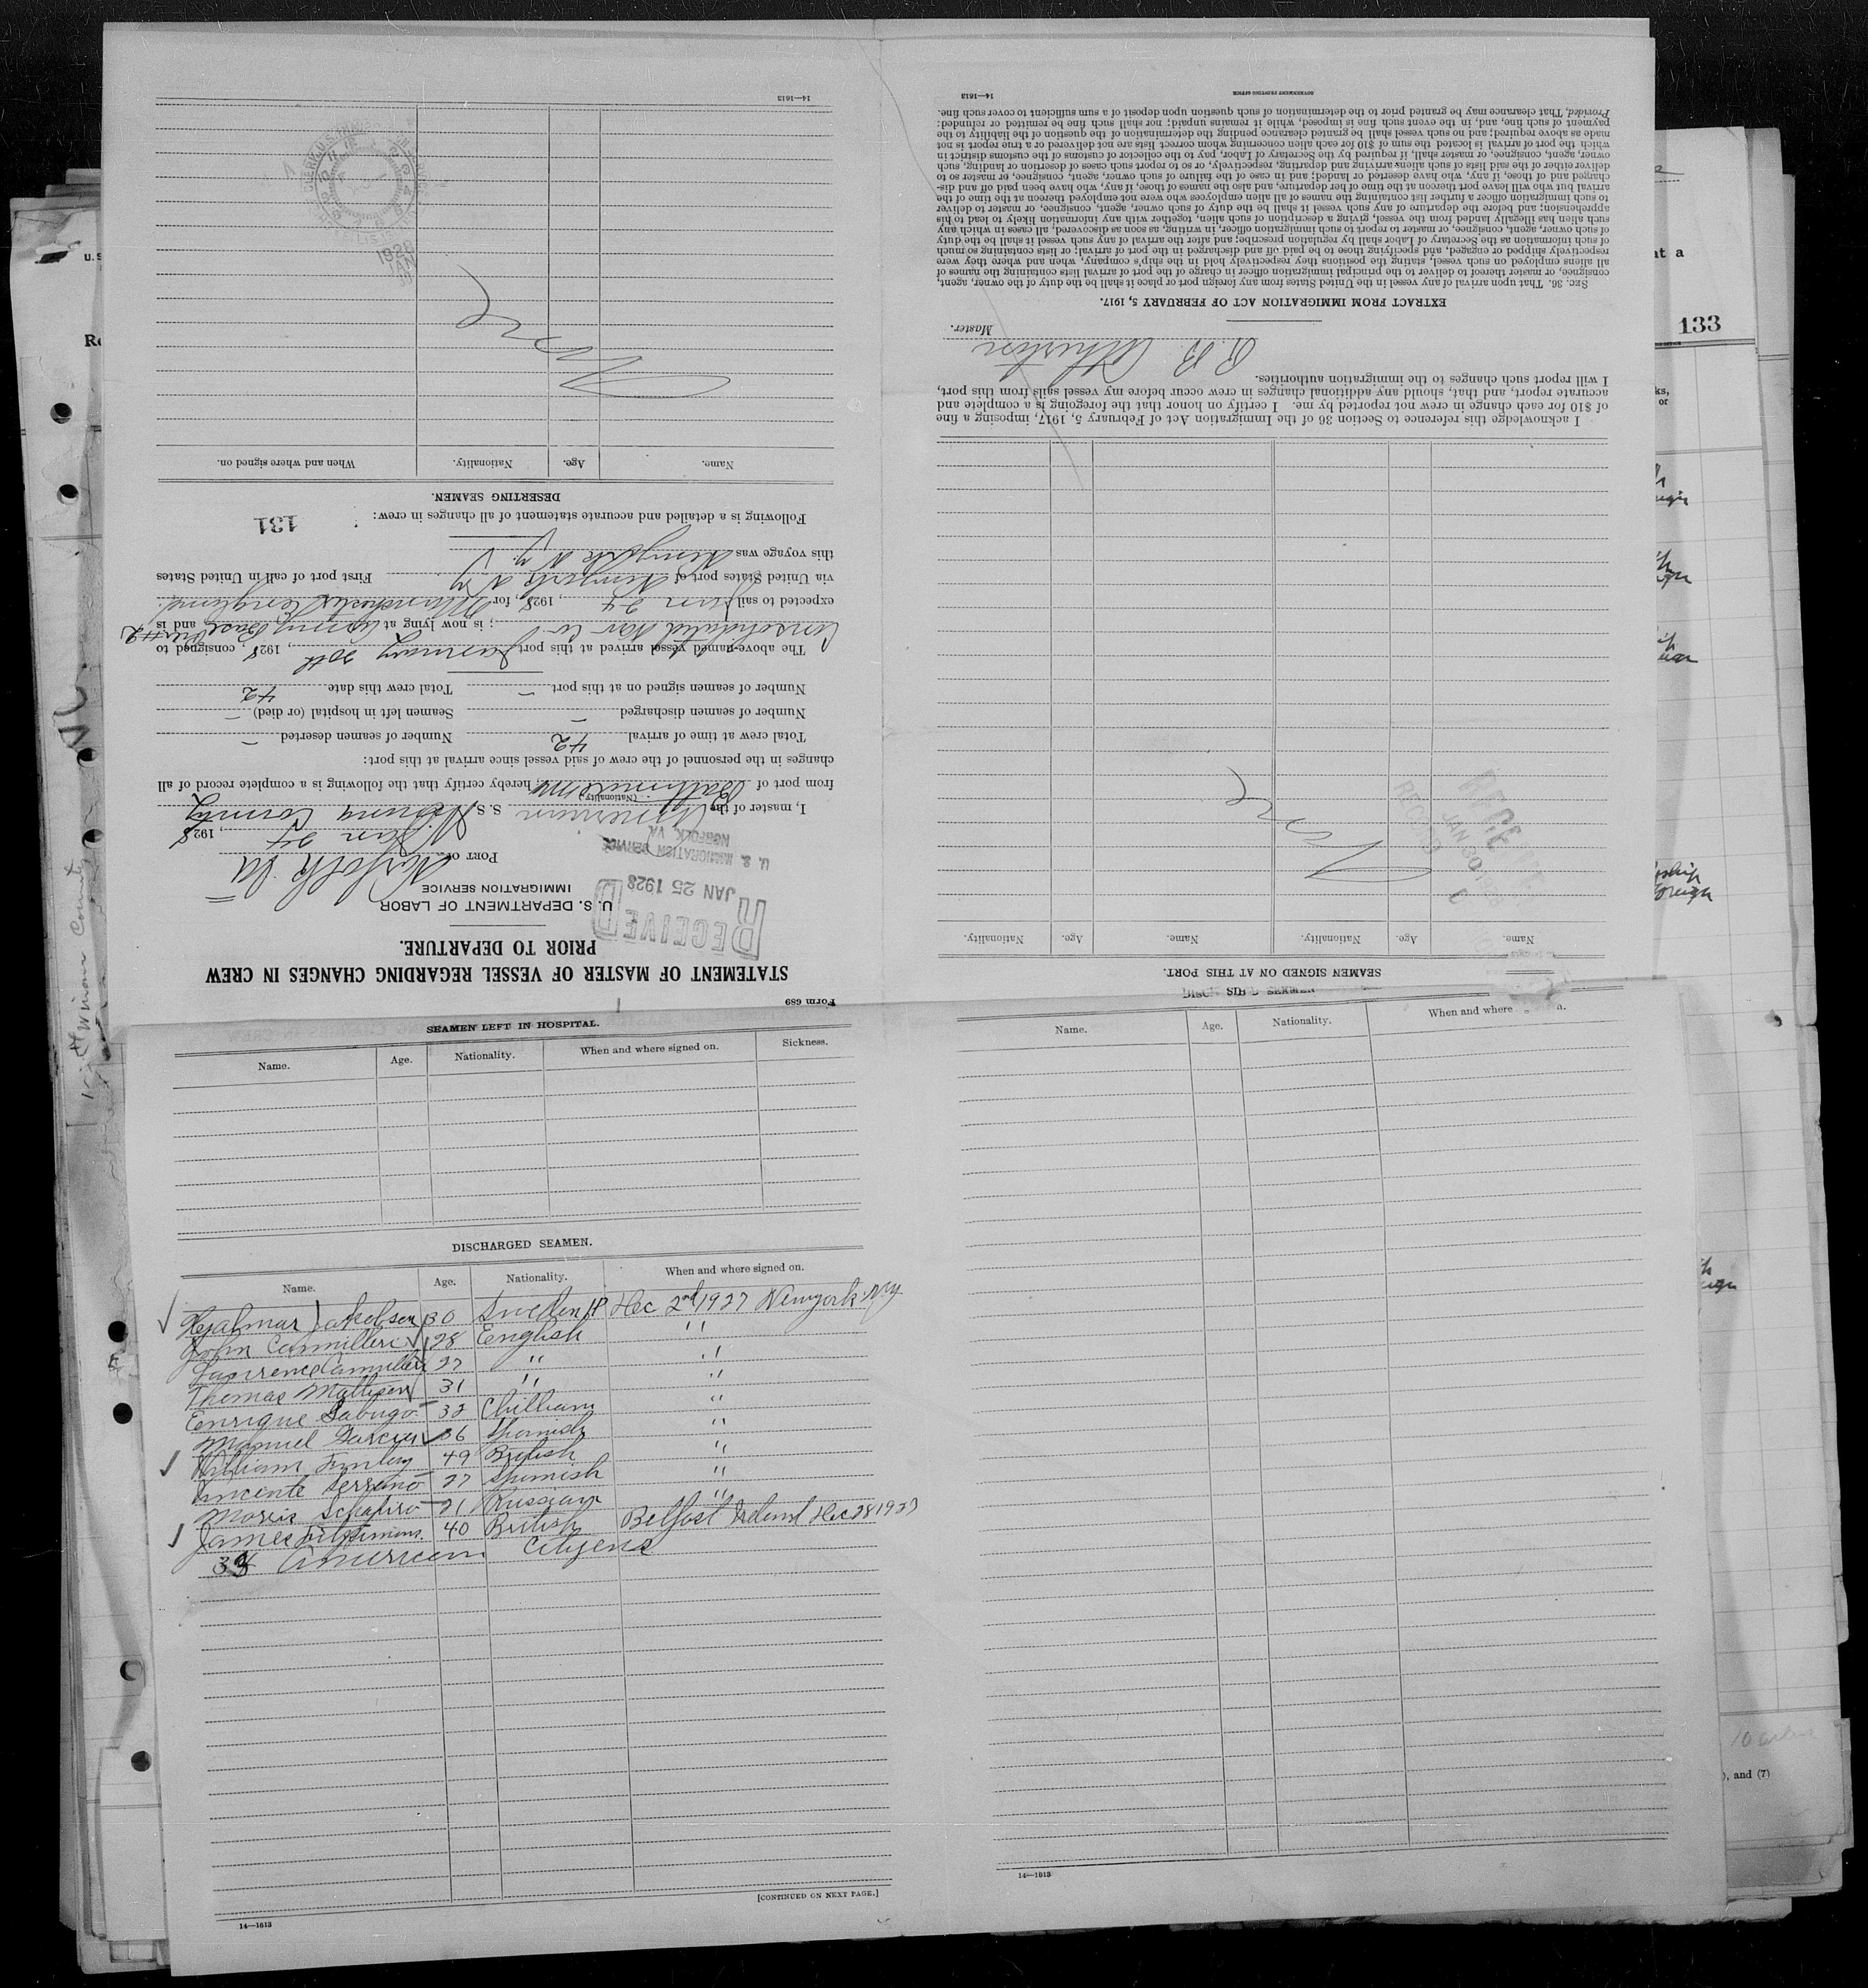 Form 689
STATEMENT OF MASTER OF VESSEL REGARDING CHANGES IN CREW
PRIOR TO DEPARTURE.
U. S. DEPARTMENT OF LABOR
IMMIGRATION SERVICE
RECEIVED
JAN 25 1928
U. S. IMMIGRATION SERVICE
NORFOLK, VA.
PORT OF Norfolk Va
Jan 24, 1928
I, master of the American S. S. Winona County
(Nationality)
from port of Baltimore Md, hereby certify that the following is a complete record of all
changes in the personnel of the crew of said vessel since arrival at this port:
Total crew at time of arrival 42 Number of seamen deserted —
Number of seamen discharged — Seamen left in hospital (or died) —
Number of seamen signed on at this port — Total crew this date 42
The above-named vessel arrived at this port January 20th, 1928, consigned to
Consolidated Nav Co; is now lying at Army Base Pier #2 and is
expected to sail Jan 24, 1928, for Manchester England
via United States port of Newyork N Y First port of call in United States
this voyage was Newyork N Y
Following is a detailed and accurate statement of all changes in crew:
131
DESERTING SEAMEN.
Name. Age. Nationality. When and where signed on.
1928
JAN
14—1613
SEAMEN SIGNED ON AT THIS PORT.
Name. Age. Nationality. Name. Age. Nationality.
RECEIVED
JAN 30 1928
RECORD
I acknowledge this reference to Section 36 of the Immigration Act of February 5, 1917, imposing a fine
of $10 for each change in crew not reported by me. I certify on honor that the foregoing is a complete and
accurate report, and that, should any additional changes in crew occur before my vessel sails from this port,
I will report such changes to the immigration authorities.
Master.
EXTRACT FROM IMMIGRATION ACT OF FEBRUARY 5, 1917.
SEC. 36. That upon arrival of any vessel in the United States from any foreign port or place it shall be the duty of the owner, agent,
consignee, or master thereof to deliver to the principal immigration officer in charge of the port of arrival lists containing the names of
all aliens employed on such vessel, stating the positions they respectively hold in the ship's company, when and where they were
respectively shipped or engaged, and specifying those to be paid off and discharged in the port of arrival; or lists containing so much
of such information as the Secretary of Labor shall by regulation prescribe; and after the arrival of any such vessel it shall be the duty
of such owner, agent, consignee, or master to report to such immigration officer, in writing, as soon as discovered, all cases in which any
such alien has illegally landed from the vessel, giving a description of such alien, together with any information likely to lead to his
apprehension; and before the departure of any such vessel it shall be the duty of such owner, agent, consignee, or master to deliver
to such immigration officer a further list containing the names of all alien employees who were not employed thereon at the time of the
arrival but who will leave port thereon at the time of her departure, and also the names of those, if any, who have been paid off and dis-
charged and of those, if any, who have deserted or landed; and in case of the failure of such owner, agent, consignee, or master so to
deliver either of the said lists of such aliens arriving and departing, respectively, or so to report such cases of desertion or landing, such
owner, agent, consignee, or master, shall, if required by the Secretary of Labor, pay to the collector of customs of the customs district in
which the port of arrival is located the sum of $10 for each alien concerning whom correct lists are not delivered or a true report is not
made as above required; and no such vessel shall be granted clearance pending the determination of the question of the liability to the
payment of such fine, and, in the event such fine is imposed, while it remains unpaid; nor shall such fine be remitted or refunded:
Provided, That clearance may be granted prior to the determination of such question upon deposit of a sum sufficient to cover such fine.
14—1613 GOVERNMENT PRINTING OFFICE
SEAMEN LEFT IN HOSPITAL.
Name. Age. Nationality. When and where signed on. Sickness.
DISCHARGED SEAMEN.
Name. Age. Nationality. When and where signed on.
Hjalmar Jakobsen 30 Sweden Dec 2nd 1927 Newyork NY
John Cammilleri 28 English "
Lawrence Camilleri 27 " "
Thomas Mallison 31 " "
Enrique Sabugo 32 Chillian "
Manuel Garcia 36 Spanish "
William Finley 49 British "
Vincente Serrano 27 Spanish "
Morris Schapiro 21 Russian "
James Fitzsimons. 40 British Belfast Ireland Dec 28 1927
38 American Citizens
[CONTINUED ON NEXT PAGE.]
14—1613
Name. Age. Nationality. When and where
14—1613
133
, and (7)